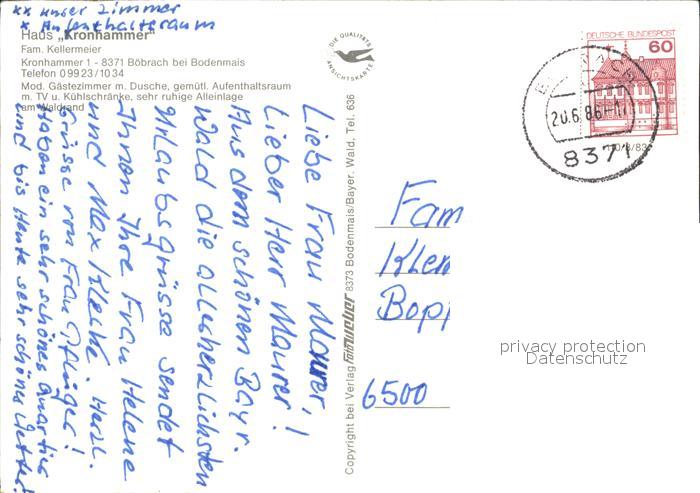 ** unser Zimmer
* Aufenthaltsraum
Haus „Kronhammer"
Fam. Kellermeier
Kronhammer 1 - 8371 Böbrach bei Bodenmais
Telefon 0 99 23 / 10 34
Mod. Gästezimmer m. Dusche, gemütl. Aufenthaltsraum
m. TV u. Kühlschränke, sehr ruhige Alleinlage
am Waldrand
Liebe Frau Maurer,
Lieber Herr Maurer!
Aus dem schönen Bayr.
Wald die allerherzlichsten
Urlaubsgrüsse sendet
Ihnen Ihre Frau Helene
und Max Klecke. Herzl.
Grüsse von Frau Pflüger!
Haben ein sehr schönes Quartier
und bis heute sehr schönes Wetter!
DIE QUALITÄTS
ANSICHTSKARTE
Copyright bei Verlag foto weber 8373 Bodenmais/Bayer. Wald, Tel. 636
DEUTSCHE BUNDESPOST
60
20.6.86-1
8371
70/8/83
Fam
Klem
Bopp
6500
privacy protection
Datenschutz